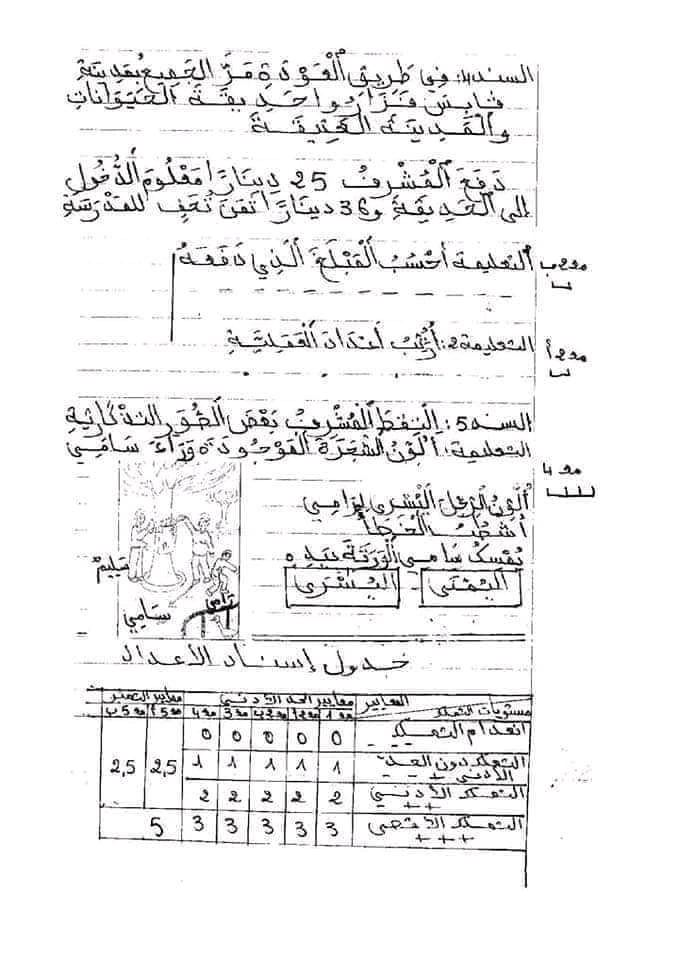 السند 4: في طَرِيقِ الْعَوْدَةِ مَرَّ الجَمِيعُ بِمَدِينَةِ
قَابِسَ فَزَارُوا حَدِيقَةَ الْحَيَوَانَاتِ
وَالْمَدِينَةَ الْعَتِيقَةَ
دَفَعَ الْمُشْرِفُ 25 دِينَارًا مَعْلُومَ الدُّخُولِ
إلى الْحَدِيقَةِ و 36 دينَارًا ثَمَنَ تُحَفٍ للمَدْرَسَةِ
مع 2 ب التعليمة 1 أَحْسُبُ الْمَبْلَغَ الَّذِي دَفَعَهُ
مع 2 أ التعليمة 2: أُرَتِّبُ أَعْدَادَ الْعَمَلِيَّةِ
السند 5: الْتَقَطَ الْمُشْرِفُ بَعْضَ الصُّوَرِ التِّذْكَارِيَّةِ
التعليمة: أُلَوِّنُ الشَّجَرَةَ الْمَوْجُودَةَ وَرَاءَ سَامِي
مع 4
أُلَوِّنُ الرِّجْلَ الْيُسْرَى لِرَامِي
أَشْطُبُ الْخَطَأَ
يُمْسِكُ سَامِي الْوَرَقَةَ بِيَدِهِ
الْيُمْنَى - الْيُسْرَى
سَلِيمٌ
رَامِي
سَامِي
جدول إسناد الأعداد
المعايير معايير الحد الأدنى معايير التميز
مستويات التملك مع 1 مع 2 أ مع 2 ب مع 3 مع 4 مع 5 أ مع 5 ب
انعدام التملك 0 0 0 0 0
التملك دون الحد الأدنى + - - 1 1 1 1 1 2,5 2,5
التملك الأدنى + + 2 2 2 2 2
التملك الأقصى + + + 3 3 3 3 3 5